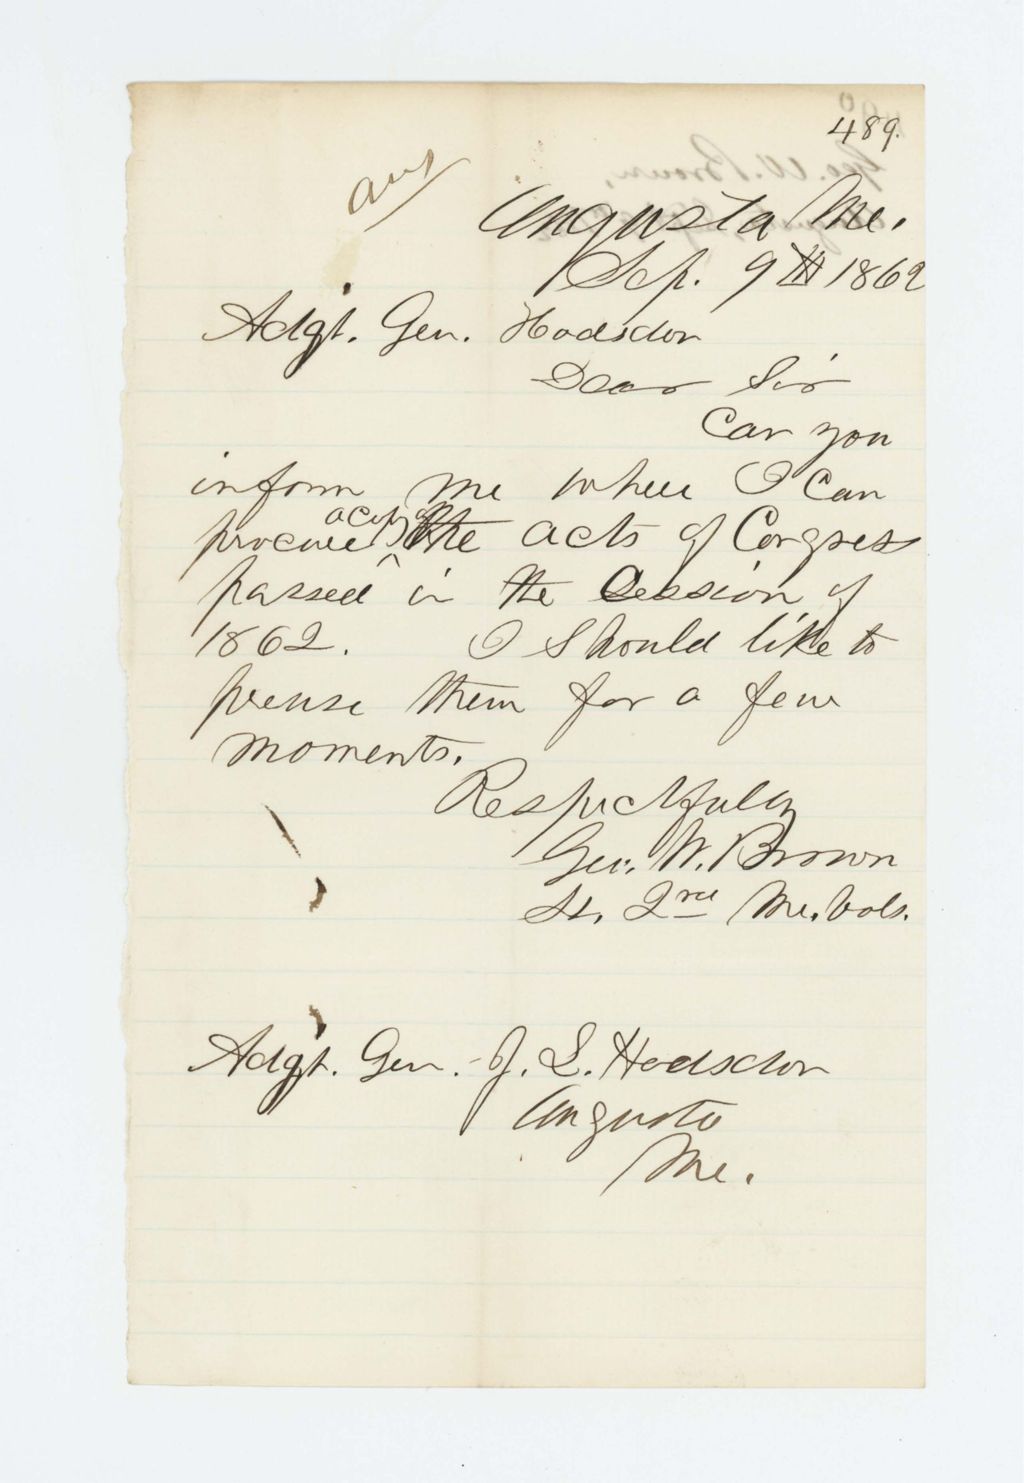 489.
ans
Augusta Me.
Sep. 9th 1862
Adgt. Gen. Hodsdon
Dear Sir
Can you
inform me where I can
procure a copy of the acts of Congress
passed in the Session of
1862. I should like to
peruse them for a few
moments.
Respectfully
Geo. W. Brown
Lt. 2nd Me. Vols.
Adgt. Gen. J. L. Hodsdon
Augusta
Me.